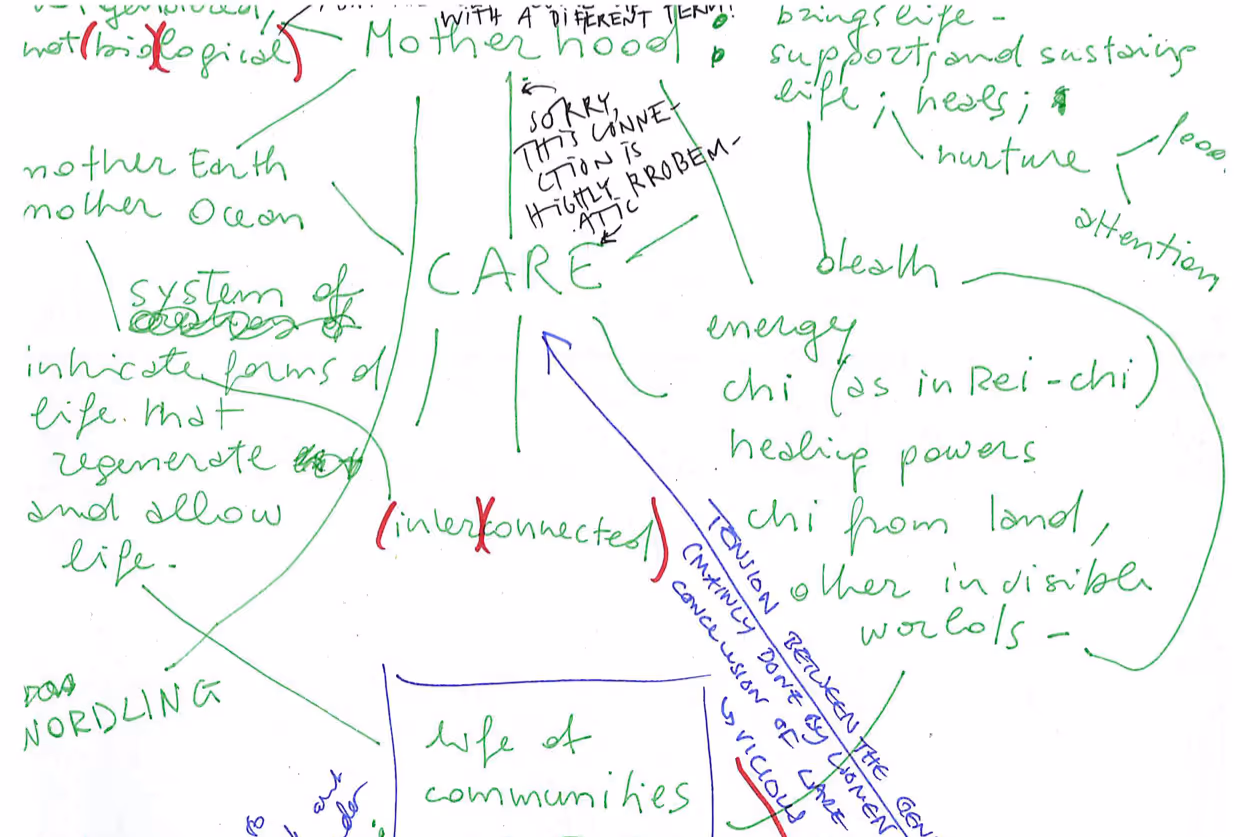 WITH A DIFFERENT TERM!!
not (bio)(logical)
Motherhood :
brings life -
supports and sustains
life ; heals ;
nurture
attention
SORRY,
THIS CONNE-
CTION IS
HIGHLY RROBEM-
ATIC
mother Earth
mother Ocean
CARE
system of
intricate forms of
life that
regenerate
and allow
life.
breath
energy
chi (as in Rei-chi)
healing powers
chi from land,
other invisible
worlds -
(inter)(connected)
TENSION BETWEEN THE GEN
(MAINLY DONE BY WOMEN
CONCLUSION OF CARE
↳ VICIOUS
NORDLING
life of
communities